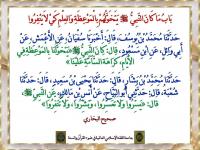 باب ما كان النبي ﷺ يتخولهم بالموعظة والعلم كي لا ينفروا
حدثنا محمد بن يوسف، قال: أخبرنا سفيان، عن الأعمش، عن
أبي وائل، عن ابن مسعود، قال: كان النبي ﷺ «يتخولنا بالموعظة في
الأيام، كراهة السآمة علينا»
حدثنا محمد بن بشار، قال: حدثنا يحيى بن سعيد، قال: حدثنا
شعبة، قال: حدثني أبو التياح، عن أنس بن مالك، عن النبي ﷺ
قال: «يسروا ولا تعسروا، وبشروا، ولا تنفروا»
صحيح البخاري